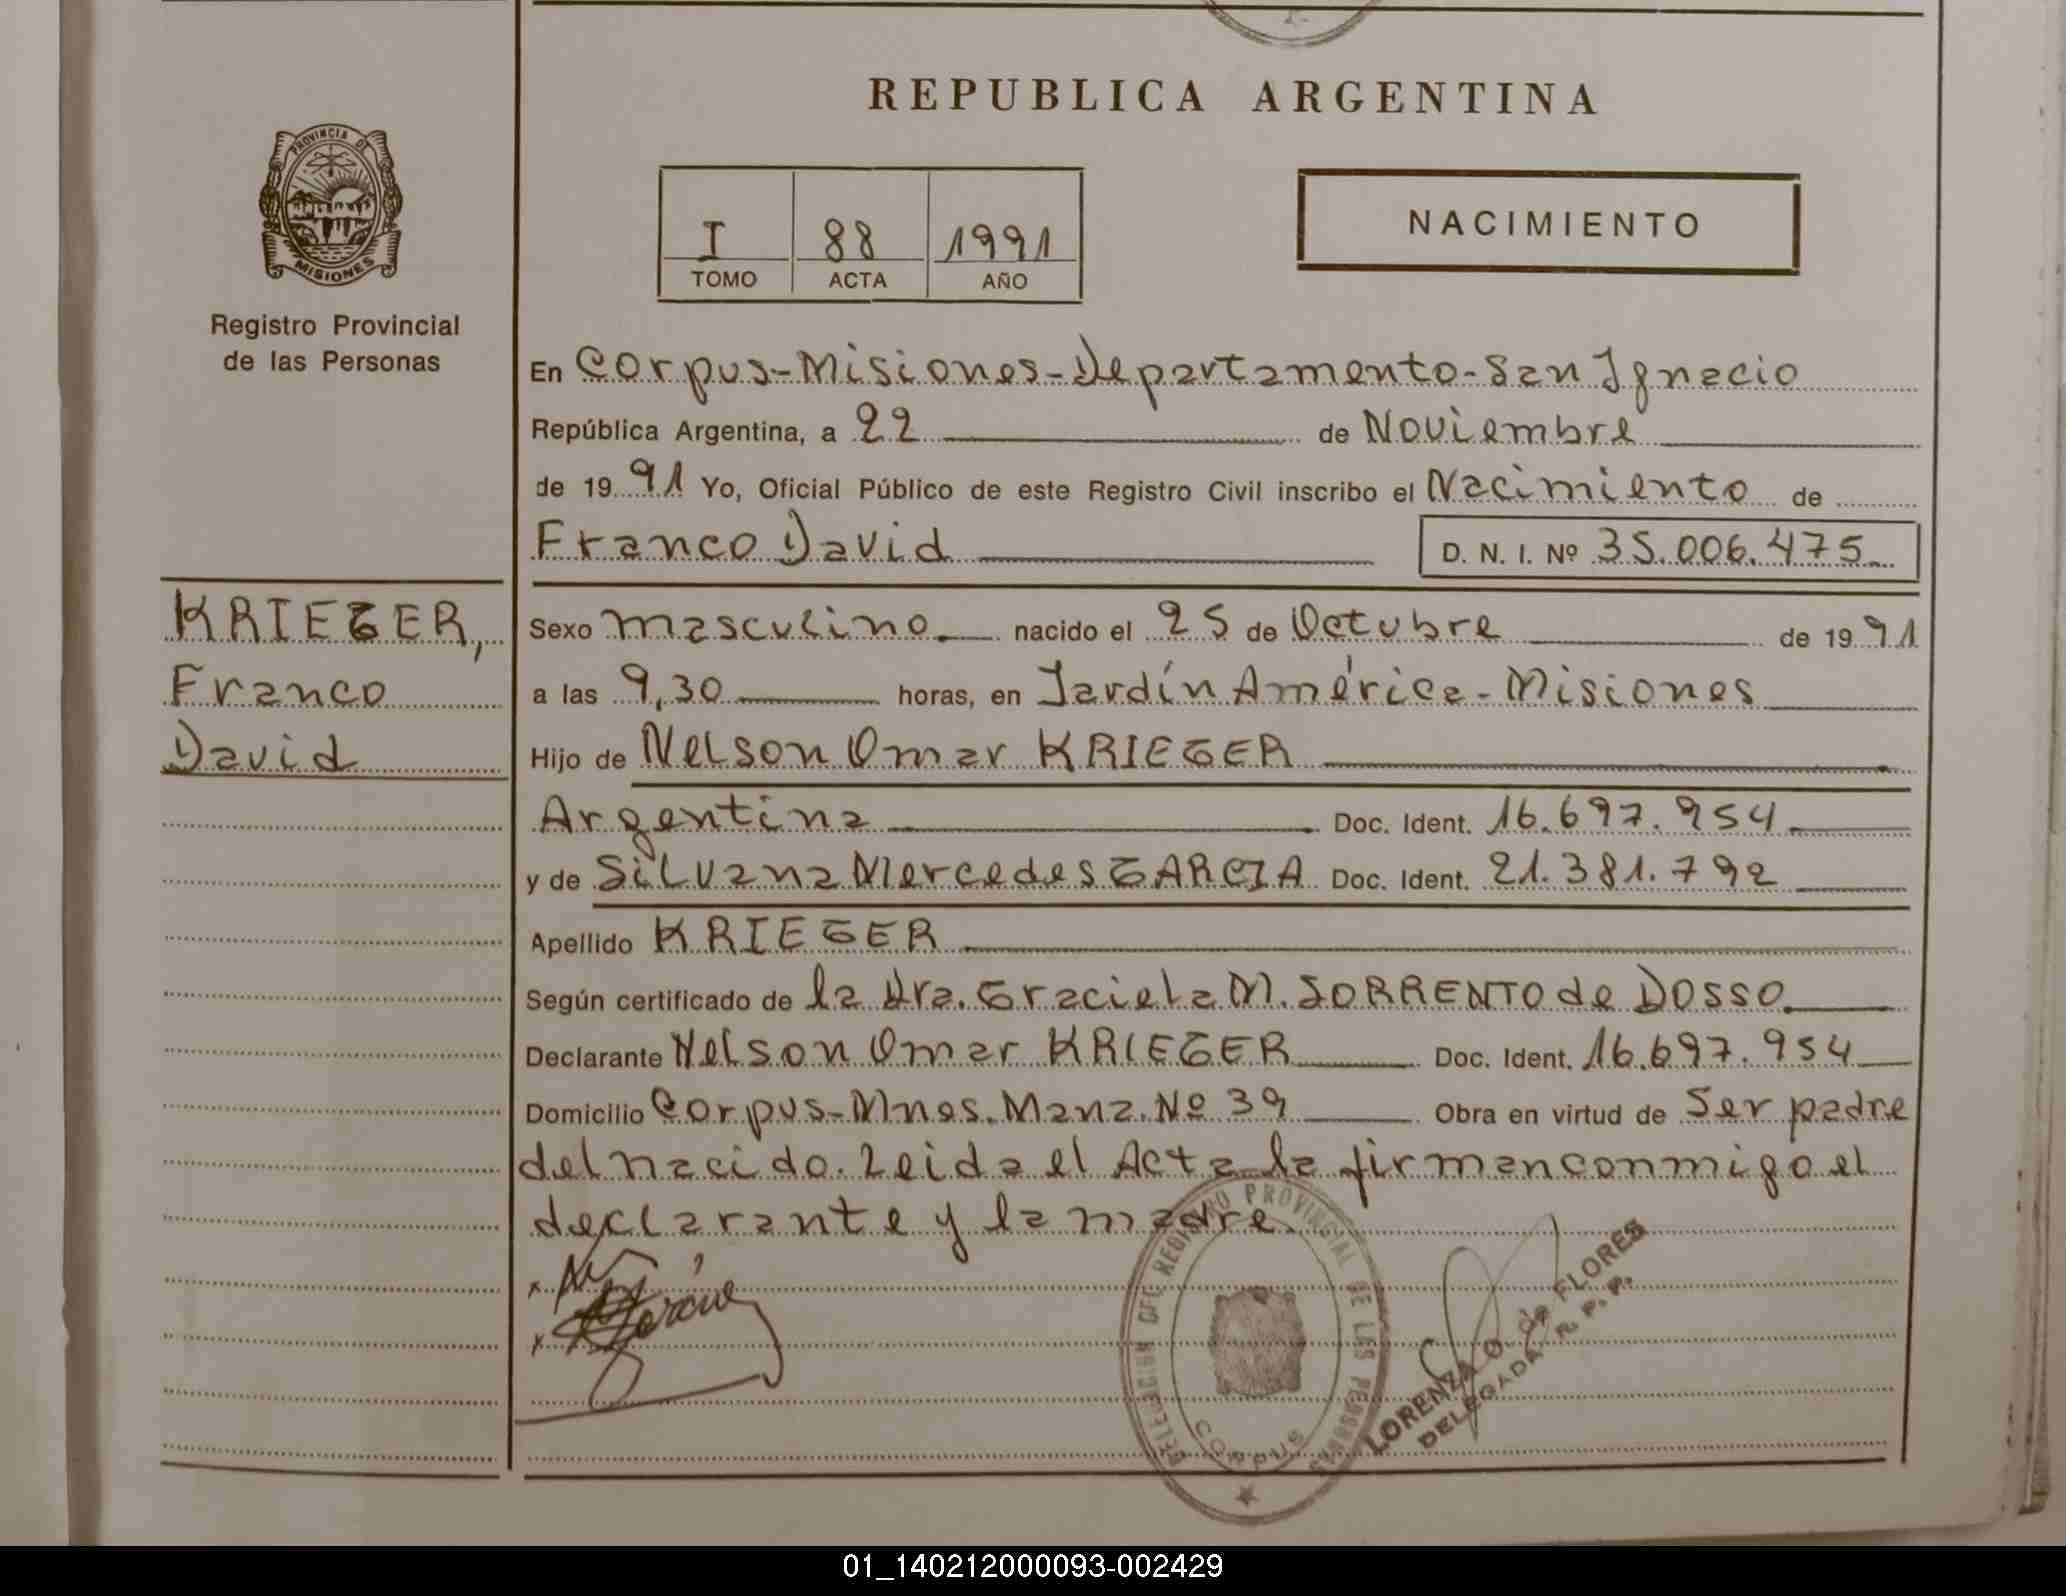 REPUBLICA ARGENTINA
PROVINCIA DE
MISIONES
Registro Provincial
de las Personas
I 88 1991
TOMO ACTA AÑO
NACIMIENTO
En Corpus-Misiones-Departamento-San Ignacio
República Argentina, a 22 de Noviembre
de 1991 Yo, Oficial Público de este Registro Civil inscribo el Nacimiento de
Franco David D. N. I. Nº 35.006.475
KRIEGER,
Franco
David
Sexo masculino nacido el 25 de Octubre de 1991
a las 9,30 horas, en Jardín América-Misiones
Hijo de Nelson Omar KRIEGER
Argentina Doc. Ident. 16.697.954
y de Silvana Mercedes GARCIA Doc. Ident. 21.381.792
Apellido KRIEGER
Según certificado de la Dra. Graciela M. SORRENTO de DOSSO
Declarante Nelson Omar KRIEGER Doc. Ident. 16.697.954
Domicilio Corpus-Mnes. Manz. Nº 39 Obra en virtud de Ser padre
del nacido. Leida el Acta la firman conmigo el
declarante y la madre.
DELEGACION REGISTRO PROVINCIAL DE LAS PERSONAS
LORENZA O. de FLORES
DELEGADA R. P. P.
01_140212000093-002429